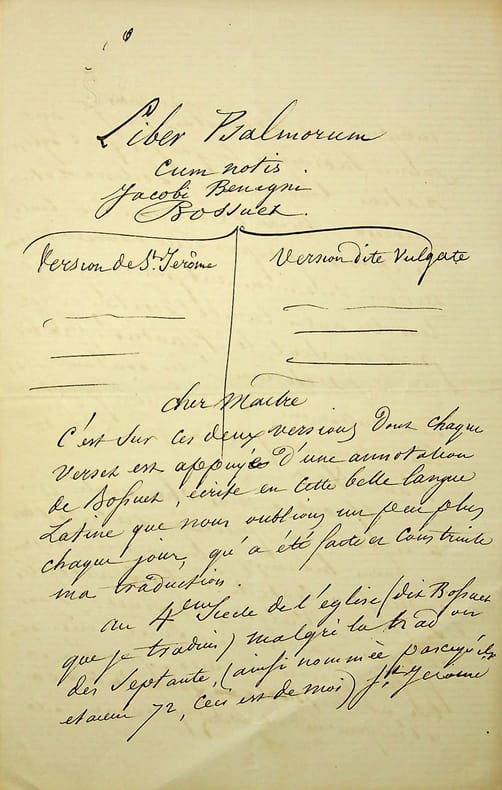 Liber Psalmorum
cum notis
Jacobi Benigni
Bossuet.
Version de St. Jerôme
Version dite Vulgate
cher Maitre
C'est sur ces deux versions dont chaque
verset est appuyée d'une annotation
de Bossuet, écrite en cette belle langue
Latine que nous oublions un peu plus
chaque jour, qu'a été faite et construite
ma traduction.
au 4eme Siecle de l'église (dit Bossuet
que je traduis) malgré la trad on
des Septante, (ainsi nommée parcequ'ils
etaient 72, Ceci est de moi) St. Jerome